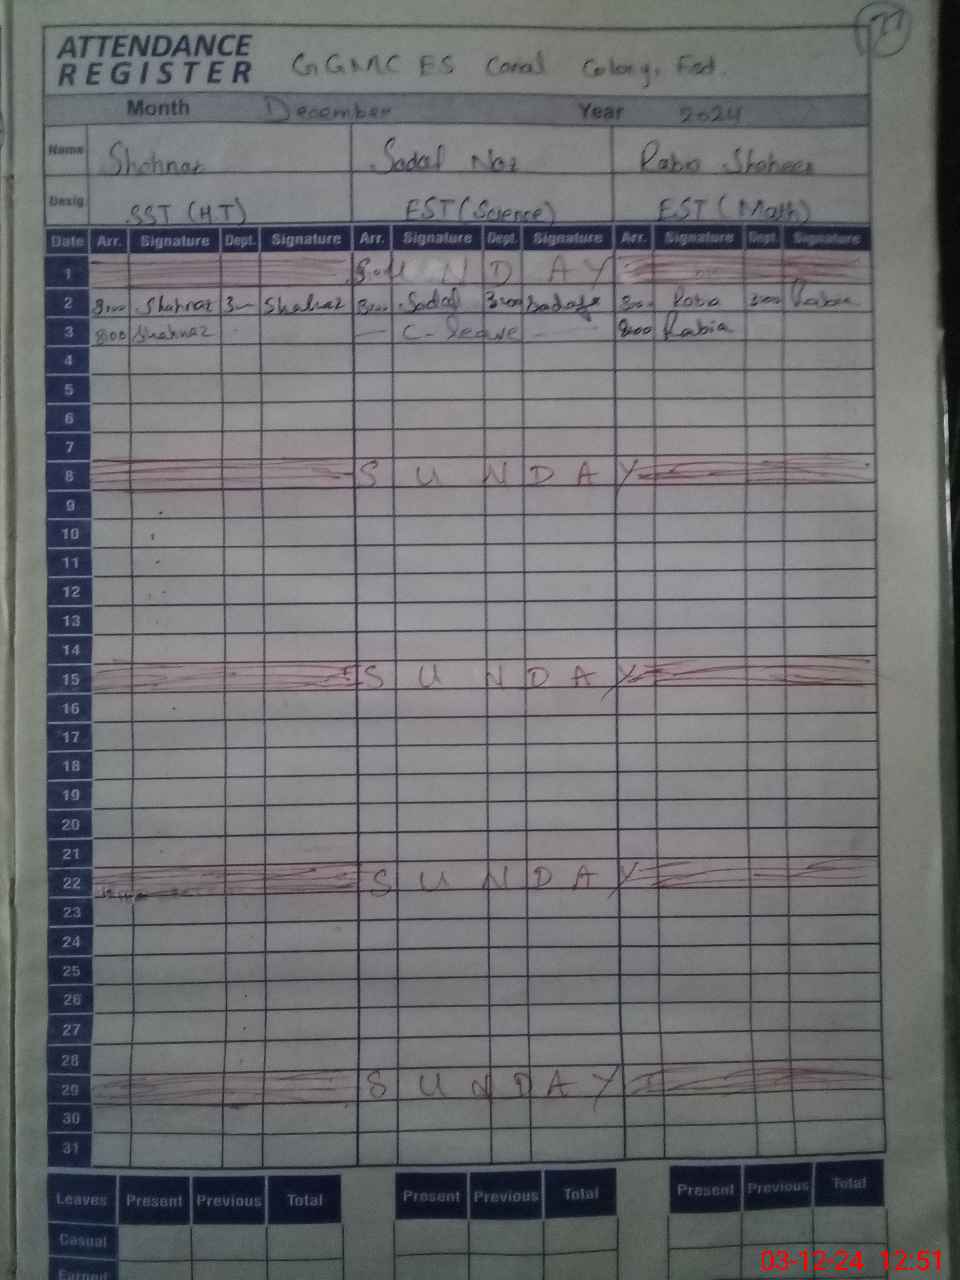 27
ATTENDANCE
REGISTER GGMC ES Canal Colony, Fsd.
Month December Year 2024
Name Shahnaz Sadaf Naz Rabia Shaheen
Desig. SST (H.T) EST (Science) EST (Math)
Date Arr. Signature Dept. Signature Arr. Signature Dept. Signature Arr. Signature Dept. Signature
1 SUNDAY
2 8:00 Shahnaz 3:00 Shahnaz 8:00 Sadaf 3:00 Sadaf 8:00 Rabia 3:00 Rabia
3 8:00 Shahnaz — C-leave — 8:00 Rabia
4
5
6
7
8 SUNDAY
9
10
11
12
13
14
15 SUNDAY
16
17
18
19
20
21
22 SUNDAY
23
24
25
26
27
28
29 SUNDAY
30
31
Leaves Present Previous Total Present Previous Total Present Previous Total
Casual
Earned
03-12-24 12:51